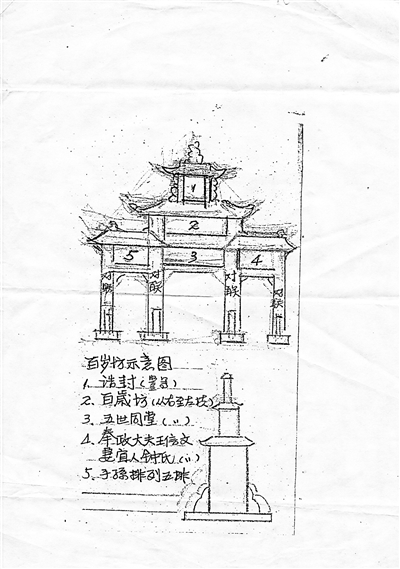 1
2
5
3
4
对联
对联
对联
对联
百岁坊示意图
1、诰封(竖写)
2、百歲坊(从右至左读)
3、五世同堂(〃)
4、奉政大夫王信文
宜人钟氏(〃)
5、子孫排列五排